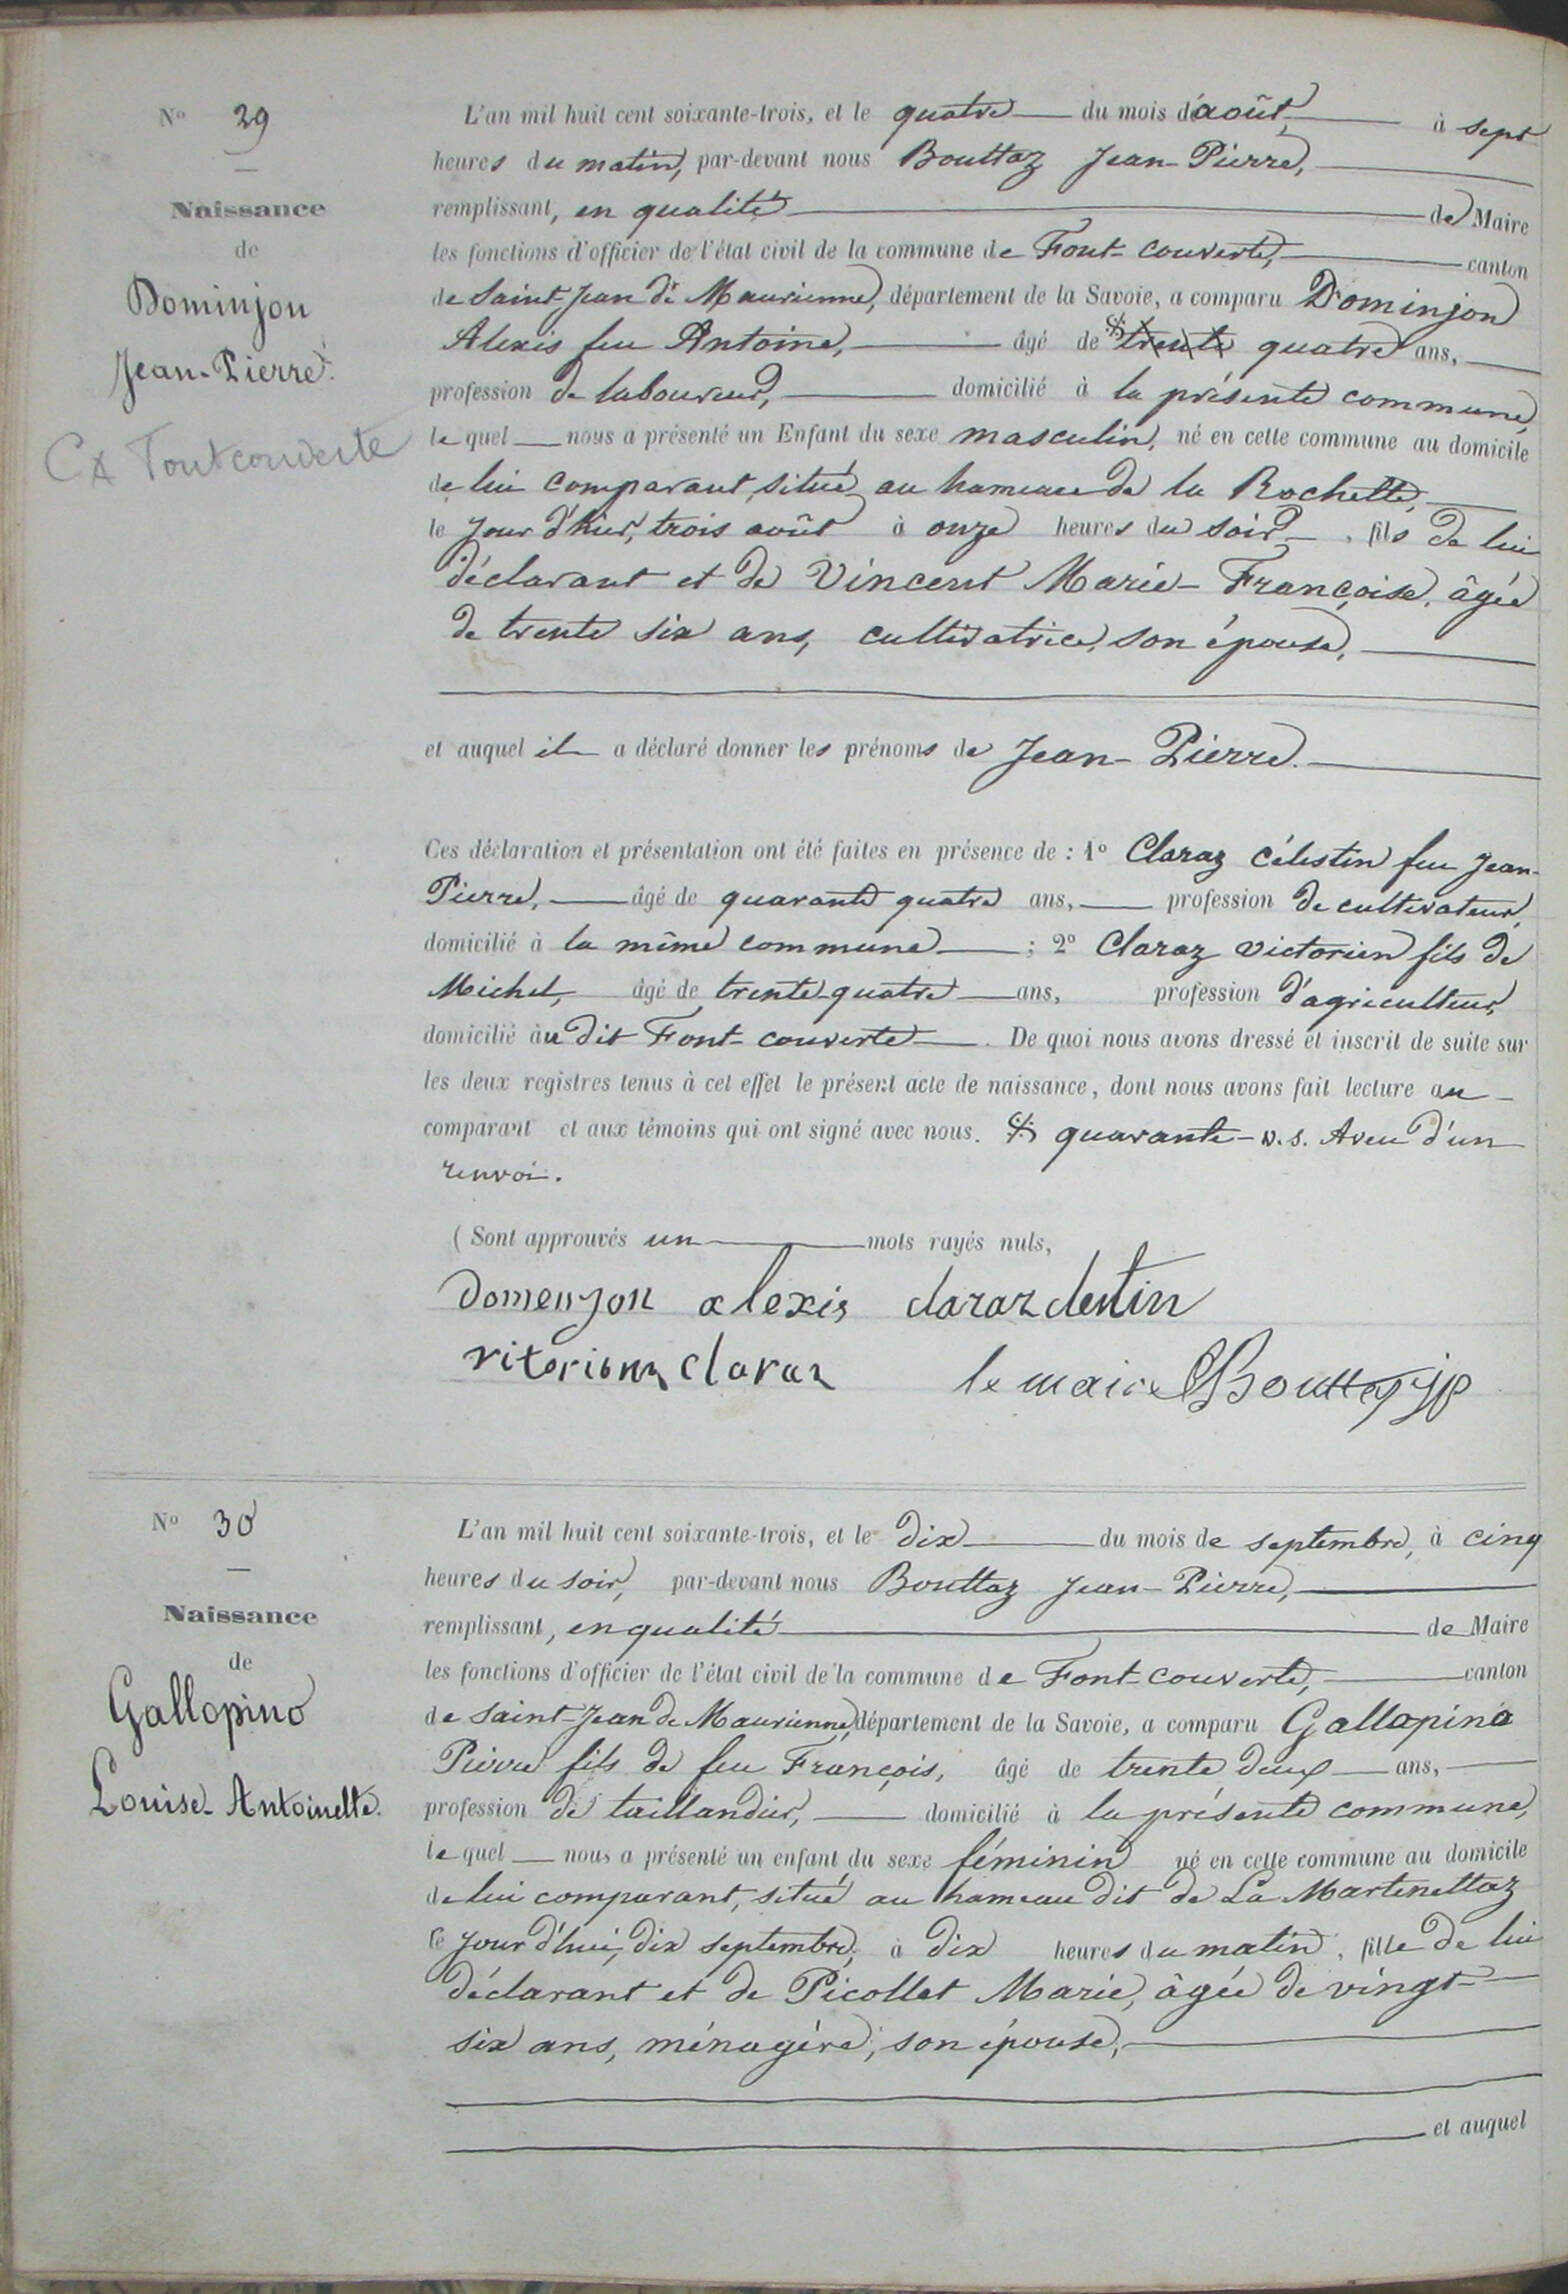 N° 29
Naissance
de
Dominjon
Jean-Pierre.
L'an mil huit cent soixante-trois, et le quatre du mois d'août, à sept
heures du matin, par-devant nous Bouttaz Jean-Pierre,
remplissant, en qualité de Maire
les fonctions d'officier de l'état civil de la commune de Font-couverte, canton
de Saint-Jean de Maurienne, département de la Savoie, a comparu Dominjon
Alexis feu Antoine, âgé de trente quatre ans,
profession de laboureur, domicilié à la présente commune,
lequel nous a présenté un Enfant du sexe masculin, né en cette commune au domicile
de lui comparant, situé au hameau de la Rochette,
le jour d'hier, trois août à onze heures du soir, fils de lui
déclarant et de Vincent Marie-Françoise, âgée
de trente six ans, cultivatrice, son épouse,
et auquel il a déclaré donner les prénoms de Jean-Pierre.
Ces déclaration et présentation ont été faites en présence de : 1° Claraz Célestin feu Jean-
Pierre, âgé de quarante quatre ans, profession de cultivateur,
domicilié à la même commune ; 2° Claraz Victorien fils de
Michel, âgé de trente-quatre ans, profession d'agriculteur,
domicilié audit Font-couverte. De quoi nous avons dressé et inscrit de suite sur
les deux registres tenus à cet effet le présent acte de naissance, dont nous avons fait lecture au
comparant et aux témoins qui ont signé avec nous. quarante - v. s. Aveu d'un
renvoi.
(Sont approuvés un mots rayés nuls,
Domenjon alexis claraz
vitorien claraz le maire Bouttaz jp
N° 30
Naissance
de
Gallopino
Louise-Antoinette.
L'an mil huit cent soixante-trois, et le dix du mois de septembre, à cinq
heures du soir, par-devant nous Bouttaz Jean-Pierre,
remplissant, en qualité de Maire
les fonctions d'officier de l'état civil de la commune de Font-couverte, canton
de Saint-Jean de Maurienne, département de la Savoie, a comparu Gallopino
Pierre fils de feu François, âgé de trente deux ans,
profession de taillandier, domicilié à la présente commune,
lequel nous a présenté un enfant du sexe féminin né en cette commune au domicile
de lui comparant, situé au hameau dit de La Martinettaz
le jour d'hui, dix septembre, à dix heures du matin, fille de lui
déclarant et de Picollet Marie, âgée de vingt-
six ans, ménagère, son épouse,
et auquel